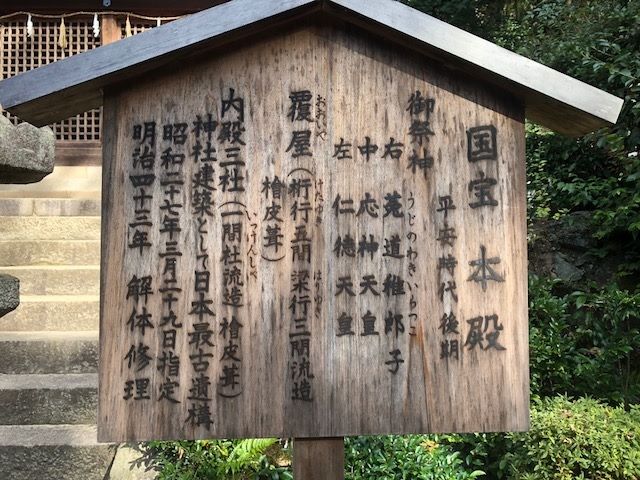 国宝 本殿
平安時代後期
御祭神
右 菟道稚郎子
うじのわきいらつこ
中 応神天皇
左 仁徳天皇
覆屋(桁行五間 梁行三間流造
おおいや けたゆき はりゆき
檜皮葺)
内殿三社(一間社流造 檜皮葺)
いっけんしゃ
神社建築として日本最古遺構
昭和二十七年三月二十九日指定
明治四十三年 解体修理